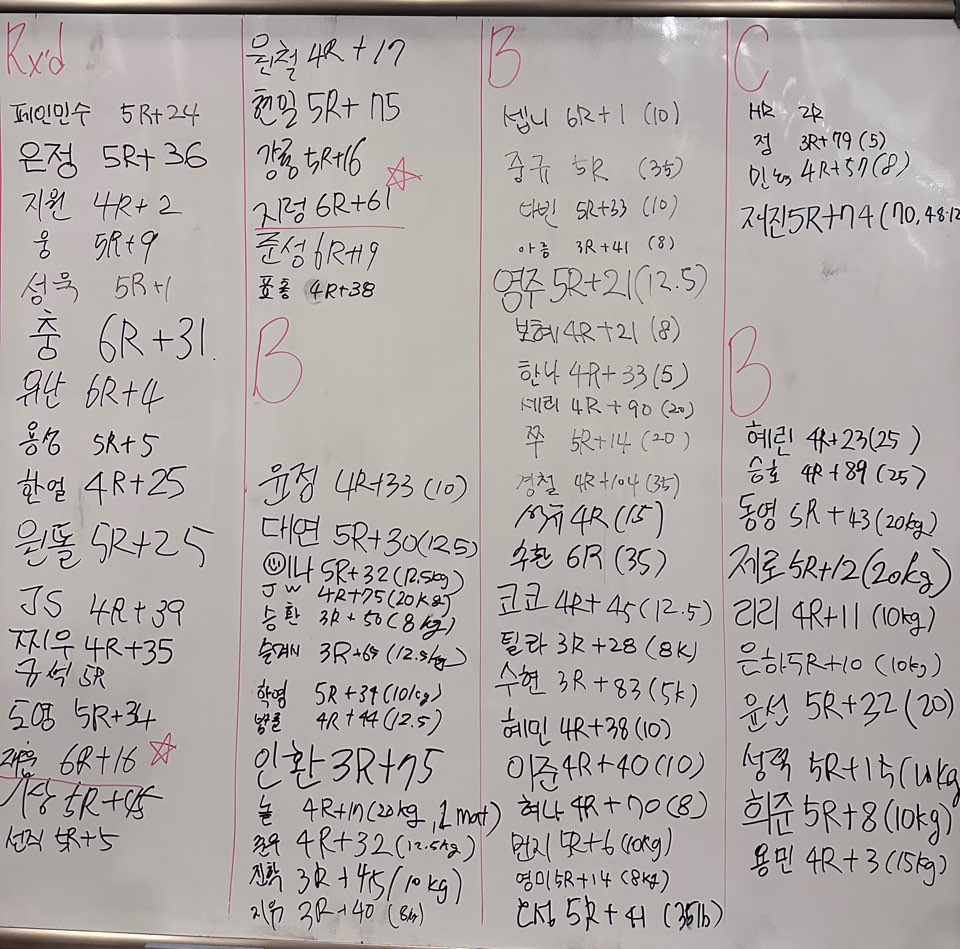 Rx'd
페인민수 5R+24
은정 5R+36
지원 4R+2
웅 5R+9
성욱 5R+1
충 6R+31
유난 6R+4
용성 5R+5
한얼 4R+25
왼돌 5R+25
JS 4R+39
찌우 4R+35
규석 5R
도영 5R+34
6R+16 ☆
5R+95
선직 5R+5
윤철 4R+17
현일 5R+75
강룡 5R+16
지렁 6R+61 ☆
준성 6R+19
표홍 4R+38
B
윤정 4R+33 (10)
대연 5R+30 (12.5)
☺이나 5R+32 (12.5kg)
JW 4R+75 (20kg)
승환 3R+50 (8kg)
3R+65 (12.5kg)
학영 5R+34 (10kg)
4R+44 (12.5)
인환 3R+75
늘 4R+17 (20kg, 1 mat)
4R+32 (12.5kg)
진학 3R+45 (10kg)
지우 3R+40
B
셉니 6R+1 (10)
중규 5R (35)
다빈 5R+33 (10)
아름 3R+41 (8)
영주 5R+21 (12.5)
보혜 4R+21 (8)
한나 4R+33 (5)
세리 4R+90 (20)
쭈 5R+14 (20)
경철 4R+104 (35)
4R (15)
수환 6R (35)
코코 4R+45 (12.5)
틸라 3R+28 (8K)
수현 3R+83 (5k)
혜민 4R+38 (10)
이준 4R+40 (10)
혜나 4R+70 (8)
먼지 5R+6 (10kg)
영미 5R+14 (8kg)
5R+41 (35lb)
C
HR 2R
점 3R+79 (5)
4R+57 (8)
저진 5R+74 (70, 48.12
B
혜린 4R+23 (25)
승호 4R+89 (25)
동영 5R+43 (20kg)
제로 5R+12 (20kg)
리리 4R+11 (10kg)
은하 5R+10 (10kg)
윤선 5R+32 (20)
성력 5R+15 (10kg
희준 5R+8 (10kg)
용민 4R+3 (15kg)